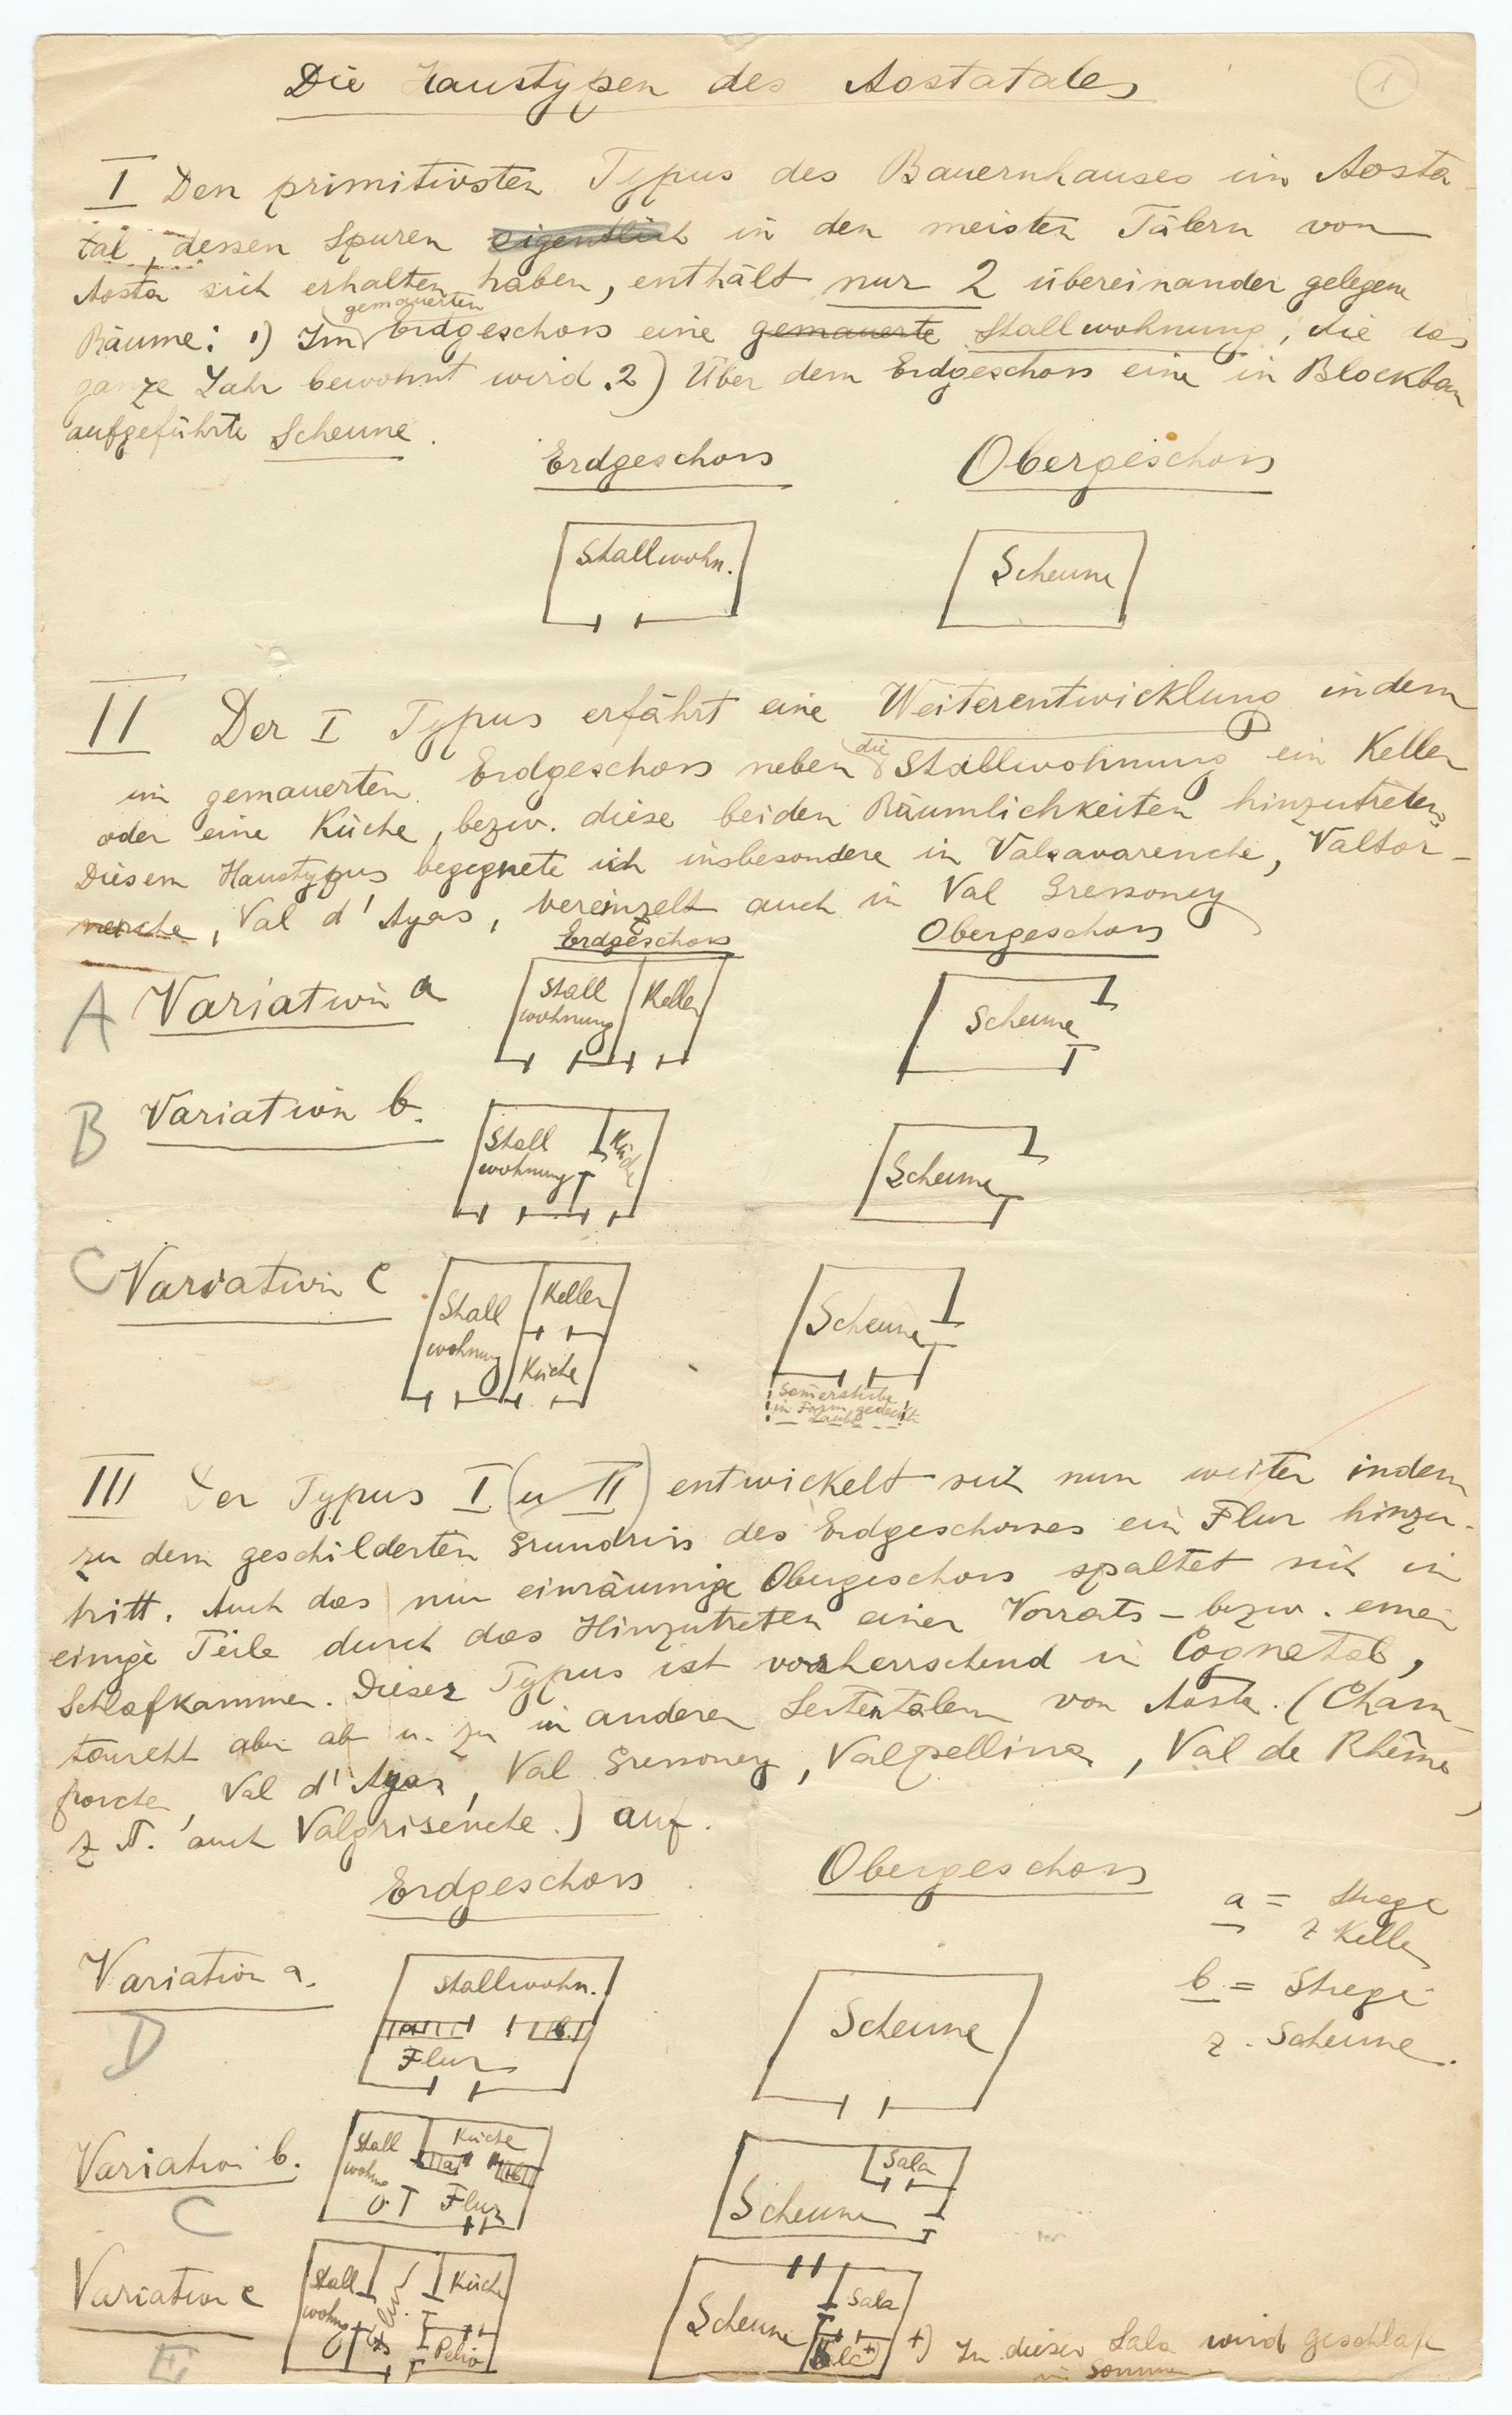 Die Haustypen des Aostatales
1
I Den primitivsten Typus des Bauernhauses im Aosta-
tal, dessen Spuren eigentlich in den meisten Tälern von
Aosta sich erhalten haben, enthält nur 2 übereinander gelegene
gemauerten
Räume: 1) Im Erdgeschoss eine gemauerte Stallwohnung, die das
ganze Jahr bewohnt wird. 2) Über dem Erdgeschoss eine in Blockbau
aufgeführte Scheune.
Erdgeschoss Obergeschoss
Stallwohn. Scheune
II Der I Typus erfährt eine Weiterentwicklung indem
im gemauerten Erdgeschoss neben die Stallwohnung ein Keller
oder eine Küche, bezw. diese beiden Räumlichkeiten hinzutreten.
Diesem Haustypus begegnete ich insbesondere in Valsavarenche, Valtor-
nenche, Val d'Ayas, vereinzelt auch in Val Gressoney
Erdgeschoss Obergeschoss
A Variation a
Stall Keller
wohnung
Scheune
B Variation b.
Stall Küche
wohnung
Scheune
C Variation c
Stall Keller
wohnung Küche
Scheune
Somerstube
in Form gedeckt
Laube
III Der Typus I (u II) entwickelt sich nun weiter indem
zu dem geschilderten Grundriss des Erdgeschosses ein Flur hinzu-
tritt. Auch das nur einräumige Obergeschoss spaltet sich in
einige Teile durch das Hinzutreten einer Vorrats- bezw. einer
Schlafkammer. Dieser Typus ist vorherrschend in Cognetal,
taucht aber ab u. zu in anderen Seitentälern von Aosta. (Cham-
porcher, Val d'Ayas, Val Gressoney, Valpellina, Val de Rhême,
z T. auch Valgrisenche.) auf.
Erdgeschoss Obergeschoss
a = Stiege
z Keller
b = Stiege
z. Scheune.
Variation a.
D
Stallwohn.
a b
Flur
Scheune
Variation b.
C
Stall Küche
wohn a b
Flur
Sala
Scheune
Variation c
E
Stall Flur Küche
wohng
Pelio
Scheune Sala
Sala +)
+) In dieser Sala wird geschlaf
im Sommer